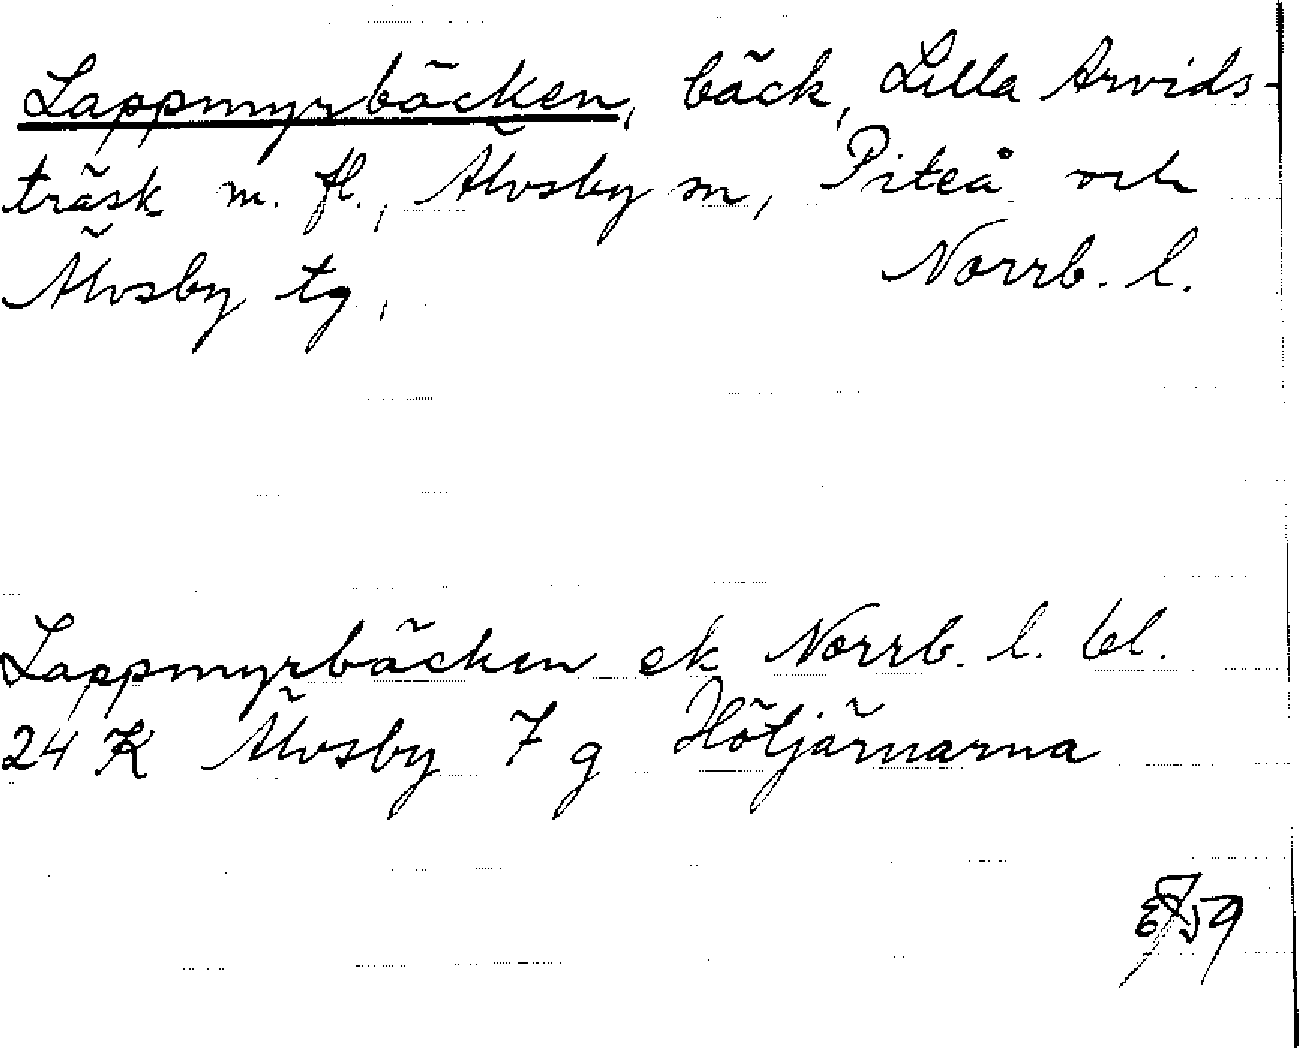 Lappmyrbäcken, bäck, Lilla Arvids-
träsk m. fl., Älvsby sn, Piteå och
Älvsby tg, Norrb. l.
Lappmyrbäcken ek Norrb. l. bl.
24 K Älvsby 7 g Hötjärnarna
59